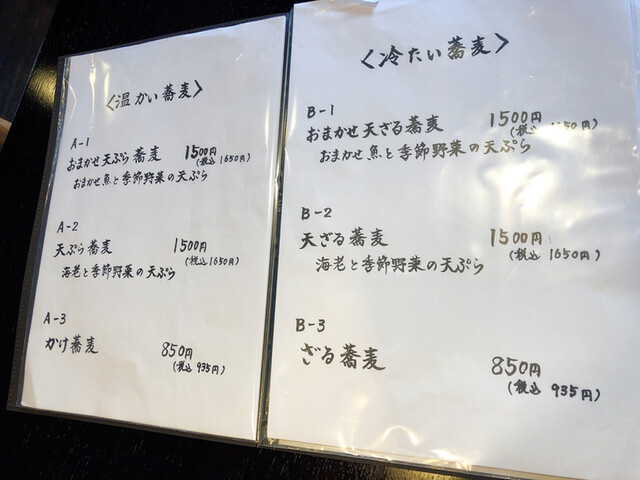 〈温かい蕎麦〉
A-1
おまかせ天ぷら蕎麦 1500円
(税込 1650円)
おまかせ魚と季節野菜の天ぷら
A-2
天ぷら蕎麦 1500円
(税込 1650円)
海老と季節野菜の天ぷら
A-3
かけ蕎麦 850円
(税込 935円)
〈冷たい蕎麦〉
B-1
おまかせ天ざる蕎麦 1500円
(税込 1650円)
おまかせ魚と季節野菜の天ぷら
B-2
天ざる蕎麦 1500円
(税込 1650円)
海老と季節野菜の天ぷら
B-3
ざる蕎麦 850円
(税込 935円)